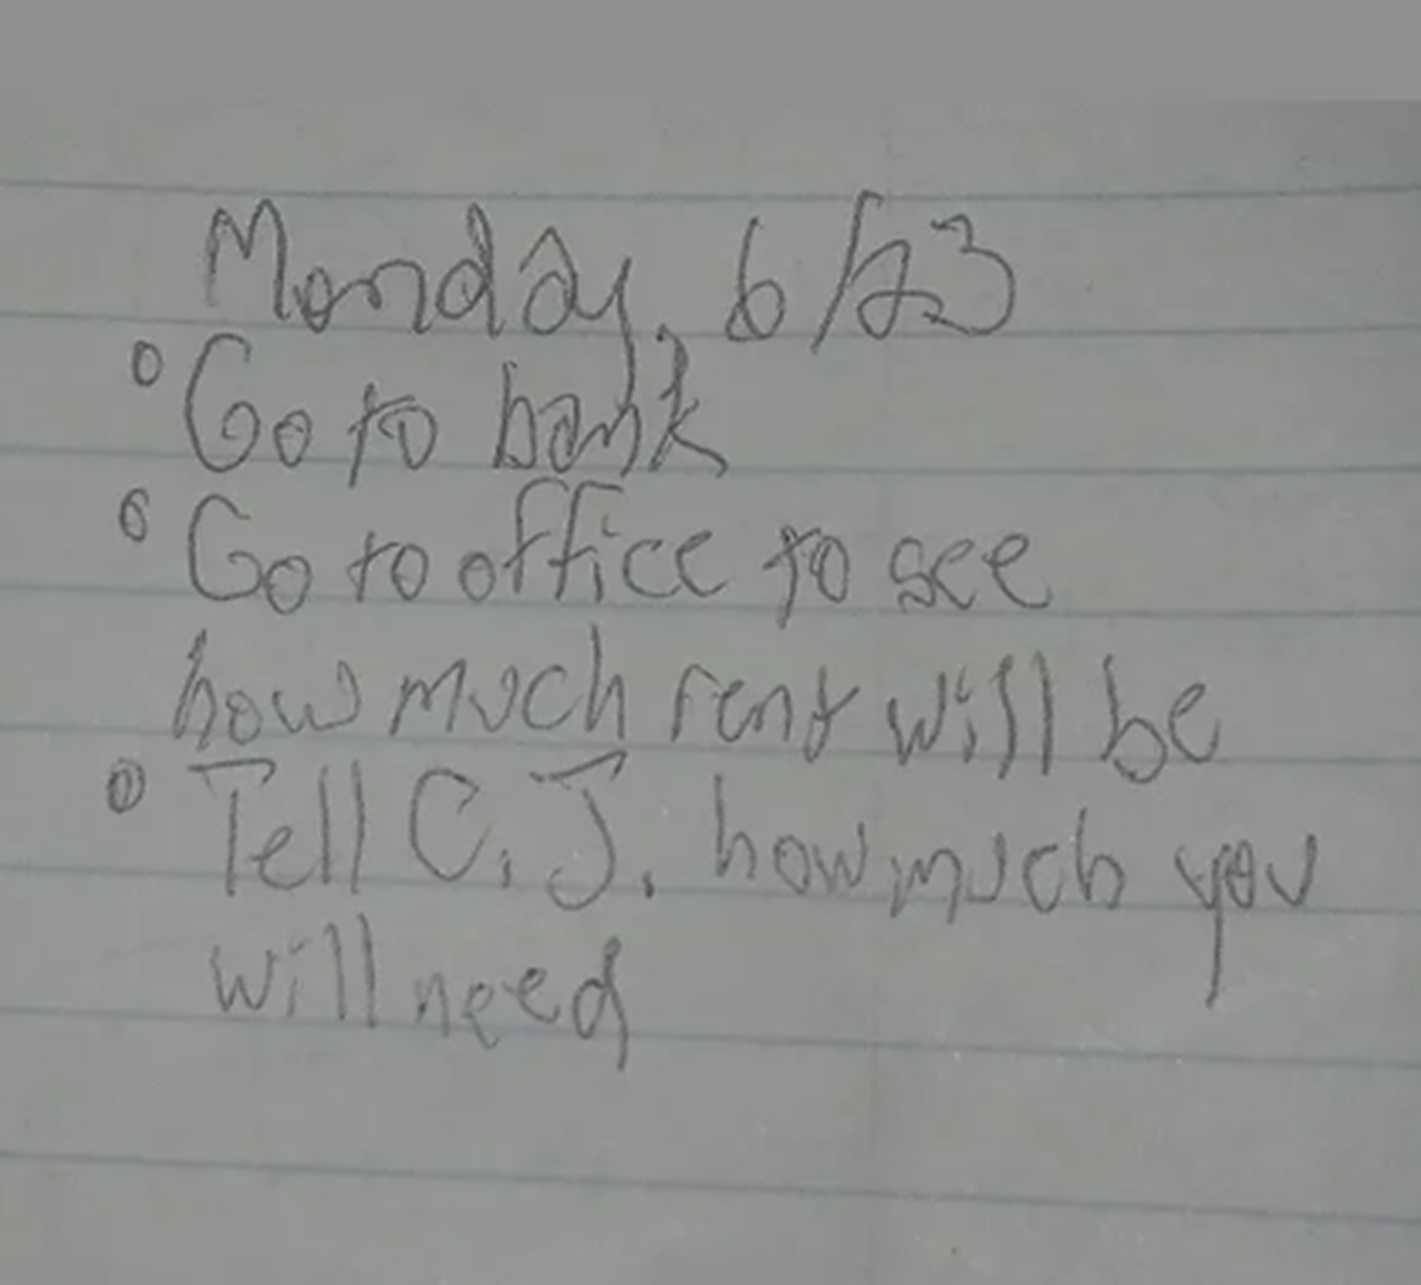 Monday, 6/23
° Go to bank
° Go to office to see
how much rent will be
° Tell C.J. how much you
will need